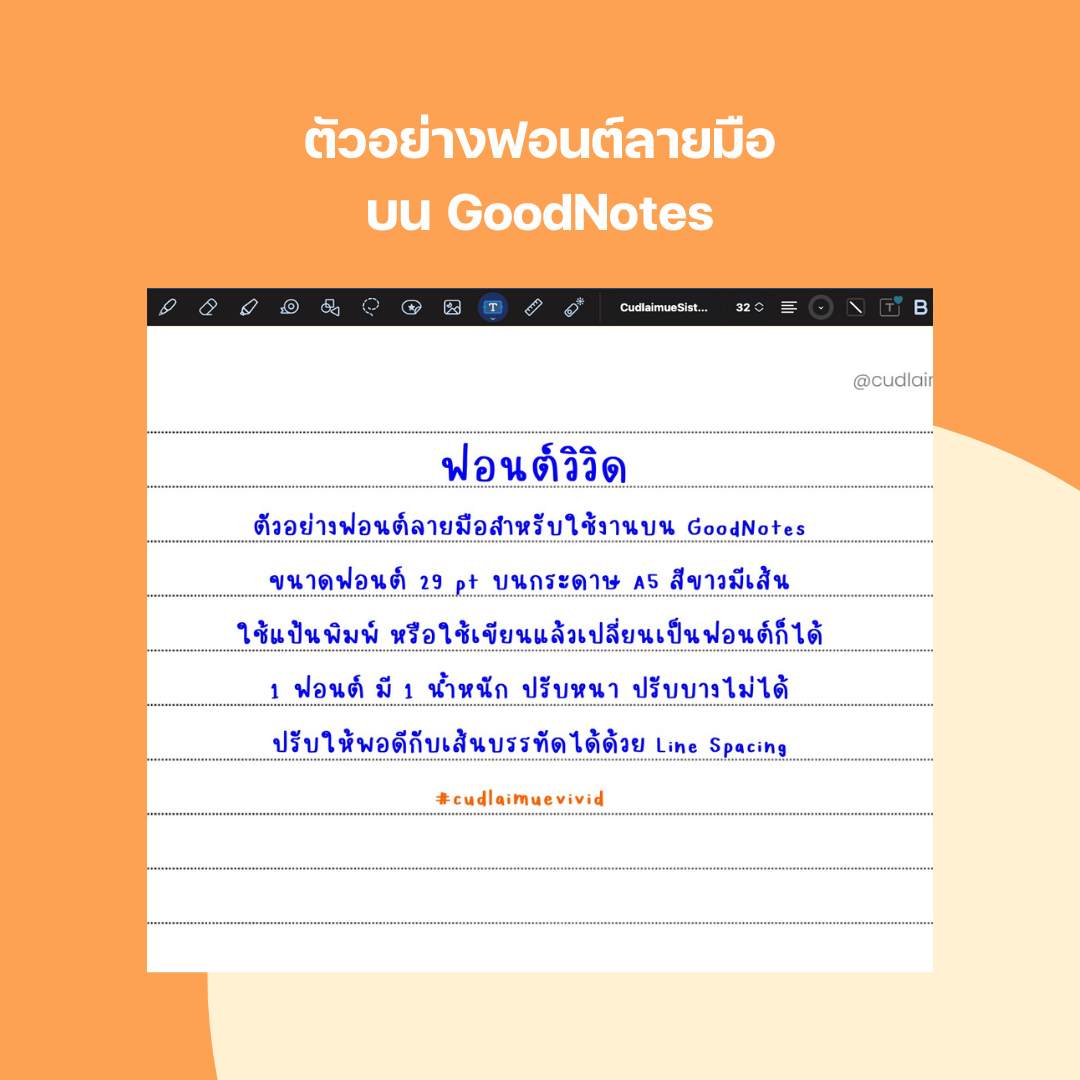 ตัวอย่างฟอนต์ลายมือ
บน GoodNotes
CudlaimueSist... 32 B
@cudlaim
ฟอนต์วิวิด
ตัวอย่างฟอนต์ลายมือสำหรับใช้งานบน GoodNotes
ขนาดฟอนต์ 29 pt บนกระดาษ A5 สีขาวมีเส้น
ใช้แป้นพิมพ์ หรือใช้เขียนแล้วเปลี่ยนเป็นฟอนต์ก็ได้
1 ฟอนต์ มี 1 น้ำหนัก ปรับหนา ปรับบางไม่ได้
ปรับให้พอดีกับเส้นบรรทัดได้ด้วย Line Spacing
#cudlaimuevivid